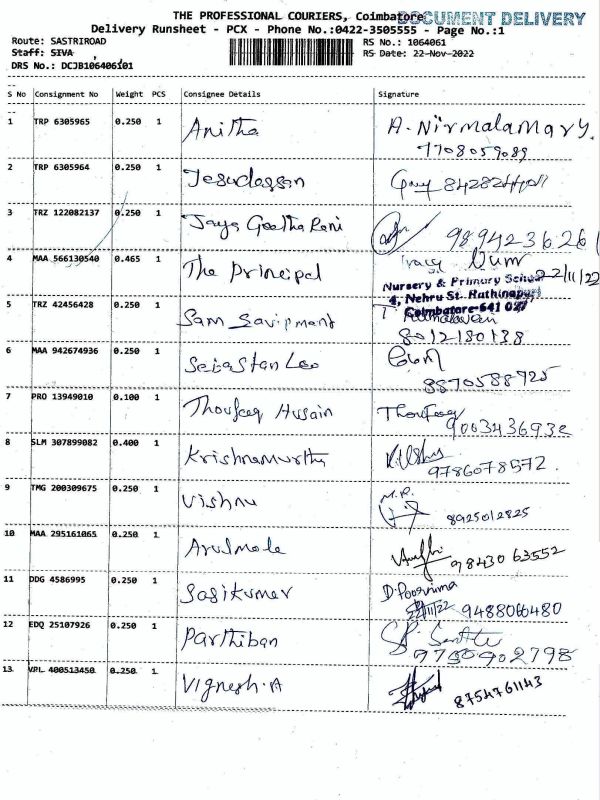 THE PROFESSIONAL COURIERS, Coimbatore DOCUMENT DELIVERY
Delivery Runsheet - PCX - Phone No.:0422-3505555 - Page No.:1
Route: SASTRIROAD RS No.: 1064061
Staff: SIVA RS Date: 22-Nov-2022
DRS No.: DCJB106406101
S No Consignment No Weight PCS Consignee Details Signature
1 TRP 6305965 0.250 1 Anitha A. Nirmalamary.
7708059089
2 TRP 6305964 0.250 1 Jesudassan
3 TRZ 122082137 0.250 1 Jaya Geetha Rani 9894236261
4 MAA 566130540 0.465 1 The Principal
Nursery & Primary School 22/11/22
4, Nehru St. Rathinapuri
Coimbatore-641 027
5 TRZ 42456428 0.250 1 Sam
8012180138
6 MAA 942674936 0.250 1 Sebastan Leo
8870588925
7 PRO 13949010 0.100 1 Thoufeeq Husain Thoufeeq
9003436932
8 SLM 307899082 0.400 1 Krishnamurthy
9786078572.
9 TMG 200309675 0.250 1 Vishnu M.R.
8925012825
10 MAA 295161065 0.250 1 Arulmole
98430 63552
11 DDG 4586995 0.250 1 Sasikumar D. Poornima
22/11/22 9488066480
12 EDQ 25107926 0.250 1 Parthiban
9750902798
13 VPL 400513450 0.250 1 Vignesh.A
8754761143